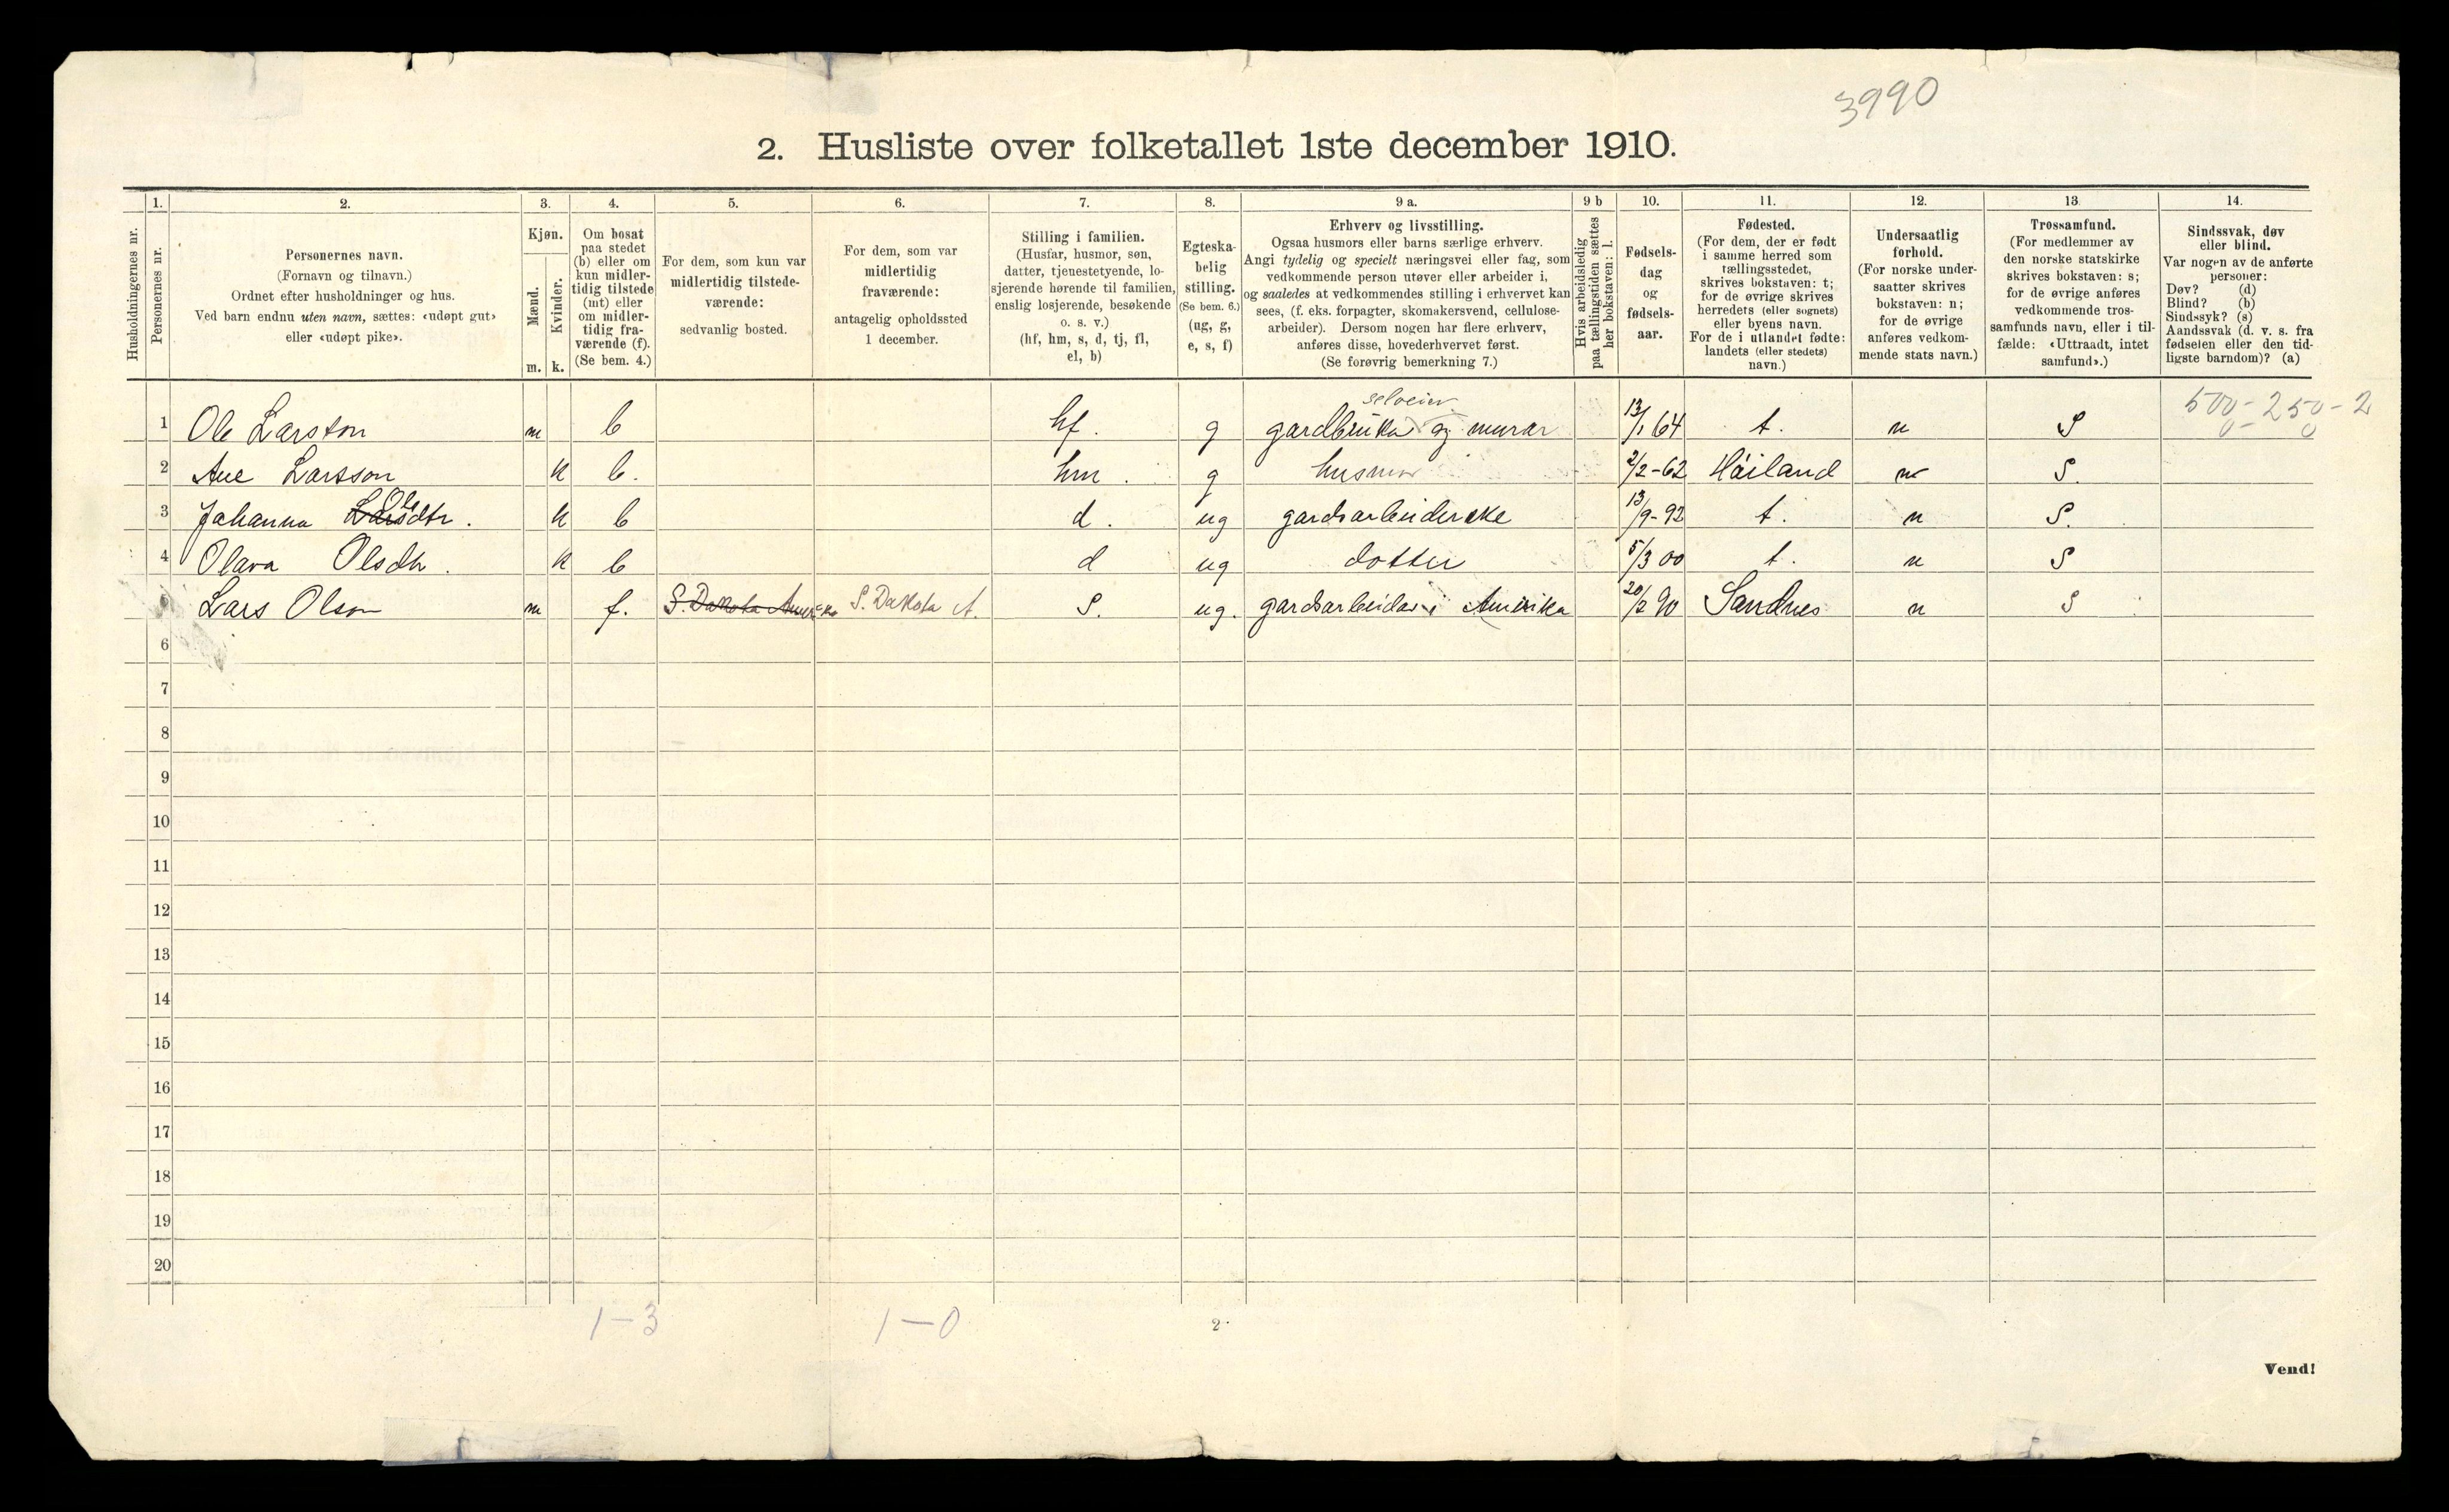 3990
2. Husliste over folketallet 1ste december 1910.
Husholdningernes nr.
1.
Personernes nr.
2.
Personernes navn.
(Fornavn og tilnavn.)
Ordnet efter husholdninger og hus.
Ved barn endnu uten navn, sættes: «udøpt gut»
eller «udøpt pike».
3.
Kjøn.
Mænd.
Kvinder.
m.
k.
4.
Om bosat
paa stedet
(b) eller om
kun midler-
tidig tilstede
(mt) eller
om midler-
tidig fra-
værende (f).
(Se bem. 4.)
5.
For dem, som kun var
midlertidig tilstede-
værende:
sedvanlig bosted.
6.
For dem, som var
midlertidig
fraværende:
antagelig opholdssted
1 december.
7.
Stilling i familien.
(Husfar, husmor, søn,
datter, tjenestetyende, lo-
sjerende hørende til familien,
enslig losjerende, besøkende
o. s. v.)
(hf, hm, s, d, tj, fl,
el, b)
8.
Egteska-
belig
stilling.
(Se bem. 6.)
(ug, g,
e, s, f)
9 a.
Erhverv og livsstilling.
Ogsaa husmors eller barns særlige erhverv.
Angi tydelig og specielt næringsvei eller fag, som
vedkommende person utøver eller arbeider i,
og saaledes at vedkommendes stilling i erhvervet kan
sees, (f. eks. forpagter, skomakersvend, cellulose-
arbeider). Dersom nogen har flere erhverv,
anføres disse, hovederhvervet først.
(Se forøvrig bemerkning 7.)
9 b
Hvis arbeidsledig
paa tællingstiden sættes
her bokstaven: l.
10.
Fødsels-
dag
og
fødsels-
aar.
11.
Fødested.
(For dem, der er født
i samme herred som
tællingsstedet,
skrives bokstaven: t;
for de øvrige skrives
herredets (eller sognets)
eller byens navn.
For de i utlandet fødte:
landets (eller stedets)
navn.)
12.
Undersaatlig
forhold.
(For norske under-
saatter skrives
bokstaven: n;
for de øvrige
anføres vedkom-
mende stats navn.)
13
Trossamfund.
(For medlemmer av
den norske statskirke
skrives bokstaven: s;
for de øvrige anføres
vedkommende tros-
samfunds navn, eller i til-
fælde: «Uttraadt, intet
samfund».)
14.
Sindssvak, døv
eller blind.
Var nogen av de anførte
personer:
Døv? (d)
Blind? (b)
Sindssyk? (s)
Aandssvak (d. v. s. fra
fødselen eller den tid-
ligste barndom)? (a)
selveier
500 - 250 - 2
1 Ole Larston m b hf. g gardbruker og murar 13/1 64 t. n S
2 Ane Larsson k b. hm. g husmor 2/2-62 Håiland n S.
Ole
3 Johanna Larsdtr. k b d. ug gardsarbeiderske 13/9-92 t. n S.
4 Olava Olsdtr. k b d ug dotter 5/3 00 t. n S
Lars Olson m f. S. Dakota Amerika S. Dakota A. S. ug. gardsarbeidar i Amerika 20/2 90 Sandnes n S
6
7
8
9
10
11
12
13
14
15
16
17
18
19
20
1-3 1-0
2
Vend!